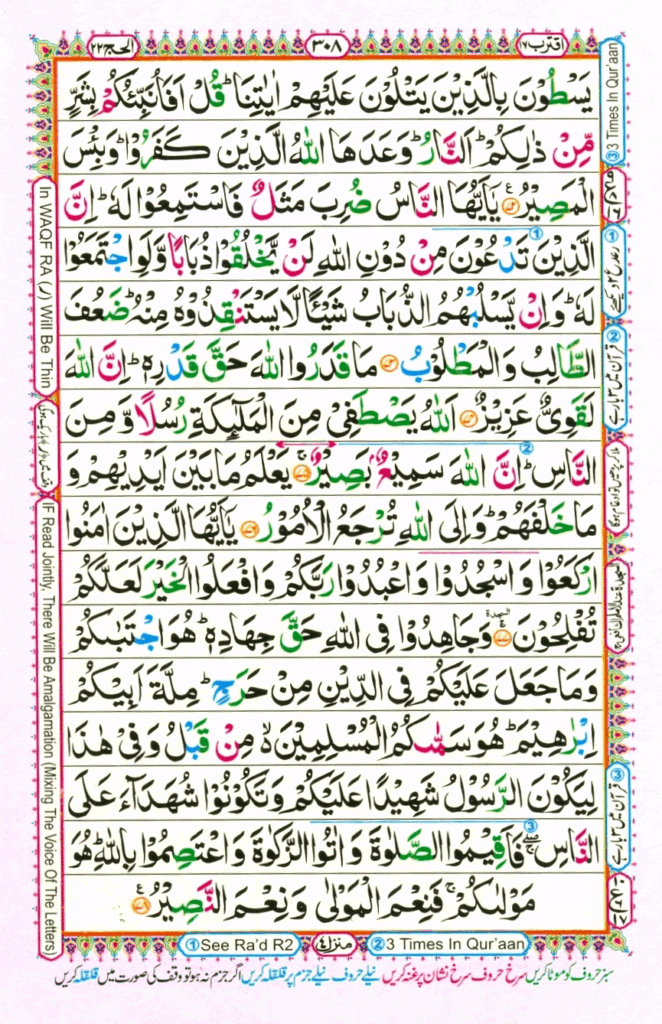 اقترب ١٧
٣٠٨
الحج ٢٢
يَسْطُوْنَ بِالَّذِيْنَ يَتْلُوْنَ عَلَيْهِمْ اٰيٰتِنَا ؕ قُلْ اَفَاُنَبِّئُكُمْ بِشَرٍّ
مِّنْ ذٰلِكُمْ ؕ اَلنَّارُ ؕ وَعَدَهَا اللّٰهُ الَّذِيْنَ كَفَرُوْا ؕ وَبِئْسَ
الْمَصِيْرُ ۟ یٰۤاَيُّهَا النَّاسُ ضُرِبَ مَثَلٌ فَاسْتَمِعُوْا لَهٗ ؕ اِنَّ
الَّذِيْنَ تَدْعُوْنَ مِنْ دُوْنِ اللّٰهِ لَنْ يَّخْلُقُوْا ذُبَابًا وَّلَوِ اجْتَمَعُوْا
لَهٗ ؕ وَاِنْ يَّسْلُبْهُمُ الذُّبَابُ شَيْـًٔا لَّا يَسْتَنْقِذُوْهُ مِنْهُ ؕ ضَعُفَ
الطَّالِبُ وَالْمَطْلُوْبُ ۟ مَا قَدَرُوا اللّٰهَ حَقَّ قَدْرِهٖ ؕ اِنَّ اللّٰهَ
لَقَوِىٌّ عَزِيْزٌ ۟ اَللّٰهُ يَصْطَفِىْ مِنَ الْمَلٰٓئِكَةِ رُسُلًا وَّمِنَ
النَّاسِ ؕ اِنَّ اللّٰهَ سَمِيْعٌۢ بَصِيْرٌ ۚ۟ يَعْلَمُ مَا بَيْنَ اَيْدِيْهِمْ وَ
مَا خَلْفَهُمْ ؕ وَاِلَى اللّٰهِ تُرْجَعُ الْاُمُوْرُ ۟ یٰۤاَيُّهَا الَّذِيْنَ اٰمَنُوا
ارْكَعُوْا وَاسْجُدُوْا وَاعْبُدُوْا رَبَّكُمْ وَافْعَلُوا الْخَيْرَ لَعَلَّكُمْ
تُفْلِحُوْنَ ۚ۟ السجدة وَجَاهِدُوْا فِى اللّٰهِ حَقَّ جِهَادِهٖ ؕ هُوَ اجْتَبٰىكُمْ
وَمَا جَعَلَ عَلَيْكُمْ فِى الدِّيْنِ مِنْ حَرَجٍ ؕ مِلَّةَ اَبِيْكُمْ
اِبْرٰهِيْمَ ؕ هُوَ سَمّٰىكُمُ الْمُسْلِمِيْنَ ۙ مِنْ قَبْلُ وَفِىْ هٰذَا
لِيَكُوْنَ الرَّسُوْلُ شَهِيْدًا عَلَيْكُمْ وَتَكُوْنُوْا شُهَدَآءَ عَلَى
النَّاسِ ۖۚ فَاَقِيْمُوا الصَّلٰوةَ وَاٰتُوا الزَّكٰوةَ وَاعْتَصِمُوْا بِاللّٰهِ ؕ هُوَ
مَوْلٰىكُمْ ۚ فَنِعْمَ الْمَوْلٰى وَنِعْمَ النَّصِيْرُ ۟
③ 3 Times In Qur'aan
② قرآن میں ۳ بار ہے
③ قرآن میں ۳ بار ہے
In WAQF RA (ر) Will Be Thin
IF Read Jointly, There Will Be Amalgamation (Mixing The Voice Of The Letters)
① See Ra'd R2
منزل ٤
② 3 Times In Qur'aan
سبز حروف کو موٹا کریں سرخ حروف سرخ نشان پر غنہ کریں نیلے حروف نیلے جزم پر قلقلہ کریں اگر جزم نہ ہو تو وقف کی صورت میں قلقلہ کریں